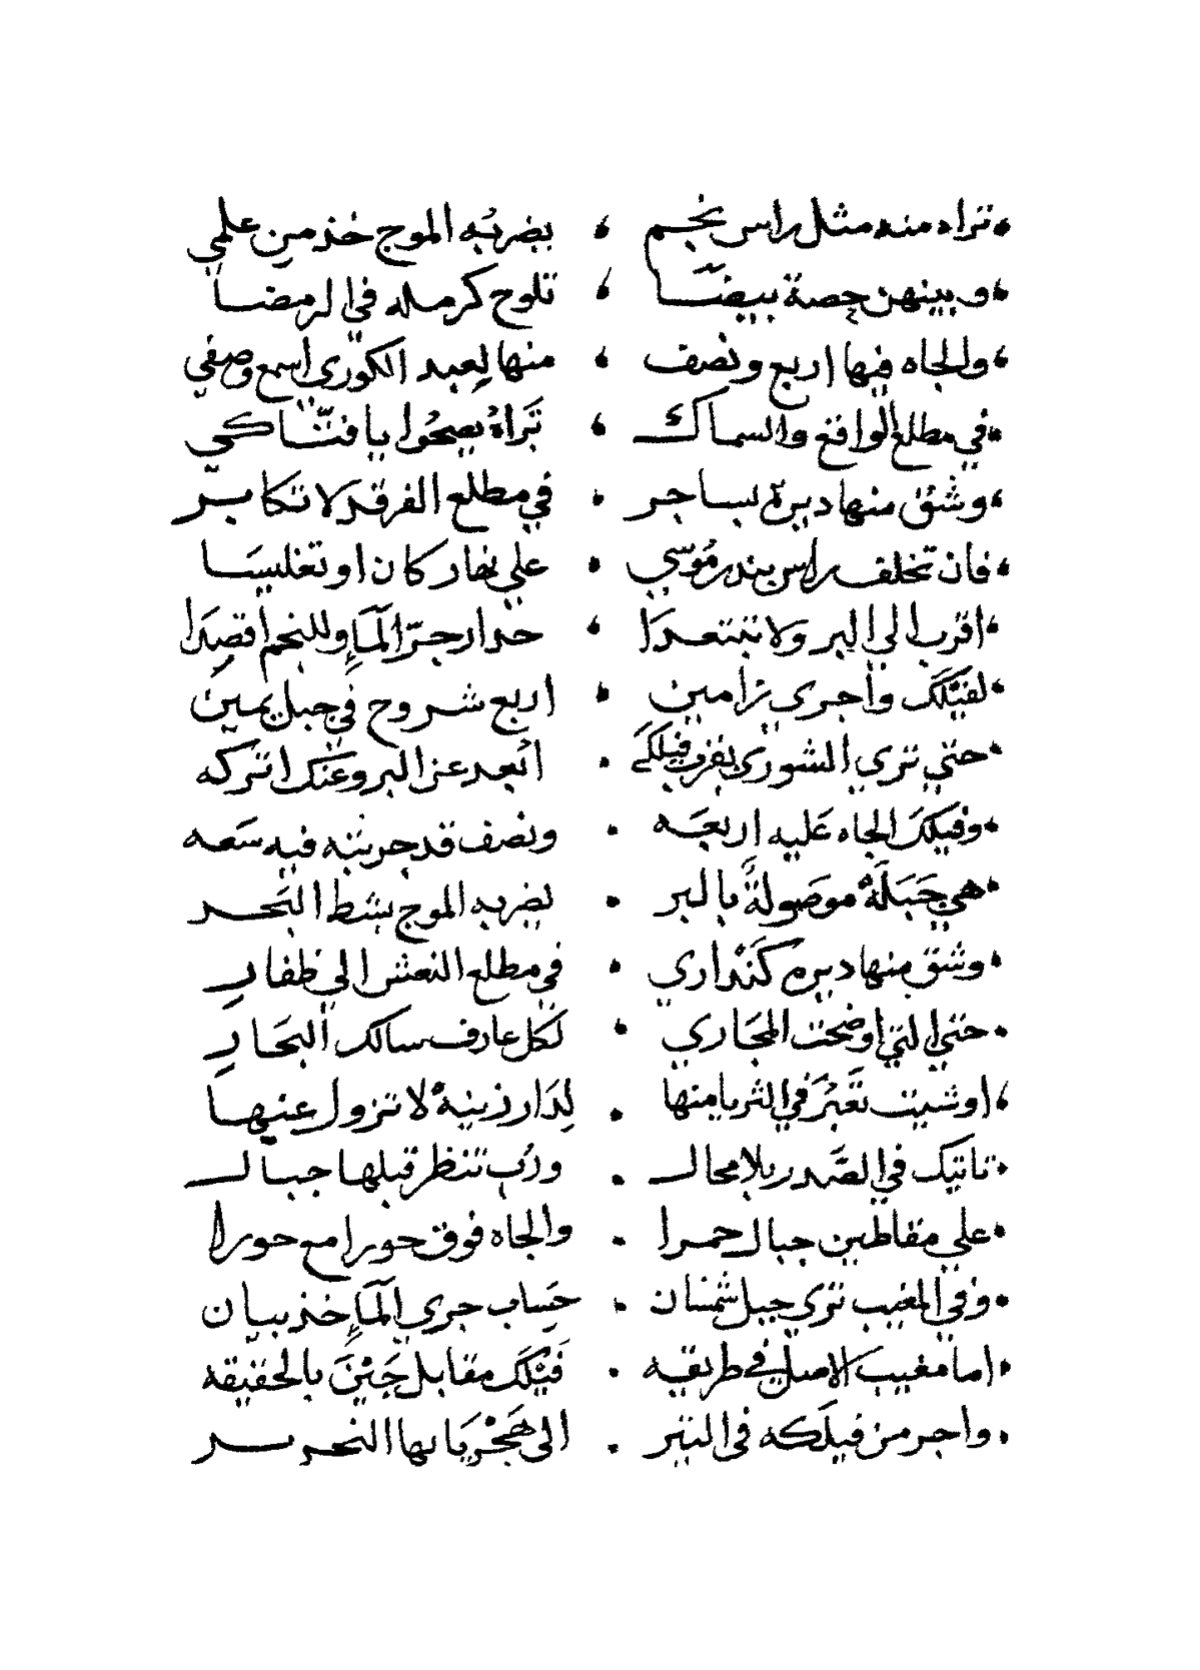 تراه منه مثل راس نجم ، يضربه الموج خذ من علمي
وبينهن حصة بيضا ، تلوح كرمله في الرمضا
والجاه فيها اربع ونصف ، منها لعبد الكوري اسمع وصفي
في مطلع الواقع والسماك ، تراه يصحوا يا فتا كي
وشق منها ديرة بساجر . في مطلع الفرقد لا تكابر
فان تخلف راس بندر موسي . علي نهار كان او تغليسا
اقرب الي البر ولا تبتعدا ، حدار جرّ المآء وللنجم اقصدا
لفيّلك واجري بزامين . اربع شروح في جبل يمين
حتي تري الشوري بقرب فيلك . ابعد عن البر وعنك اتركه
وفيلك الجاه عليه اربعه . ونصف قد جربته فيه سعه
هي جبلة موصولة بالبر . يضربه الموج بشط البحر
وشق منها ديرة كنداري . في مطلع النعش الي ظفار
حتي التي اوضحت المجاري . لكل عارف سالك البحار
او شيت تعبر في الثريا منها . لدار زينة لا تزول عنها
تاتيك في الصّدر بلا محال . ورب تنظر قبلها جبال
علي مقاطين جبال حمرا . والجاه فوق حورا مع حورا
وفي المغيب تري جبل شمسان . حساب جري المآء خذ ببيان
اما مغيب الاصلي في طريقه . فيّلك مقابل بالحقيقه
واجر من فيلكه في التير . الى يا بها النحرير